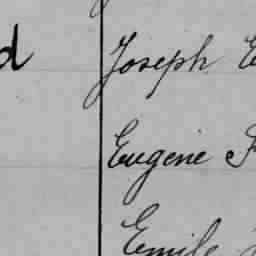 d Joseph E
Eugene F
Emile